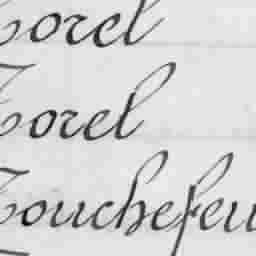 Torel
Torel
Touchefeu